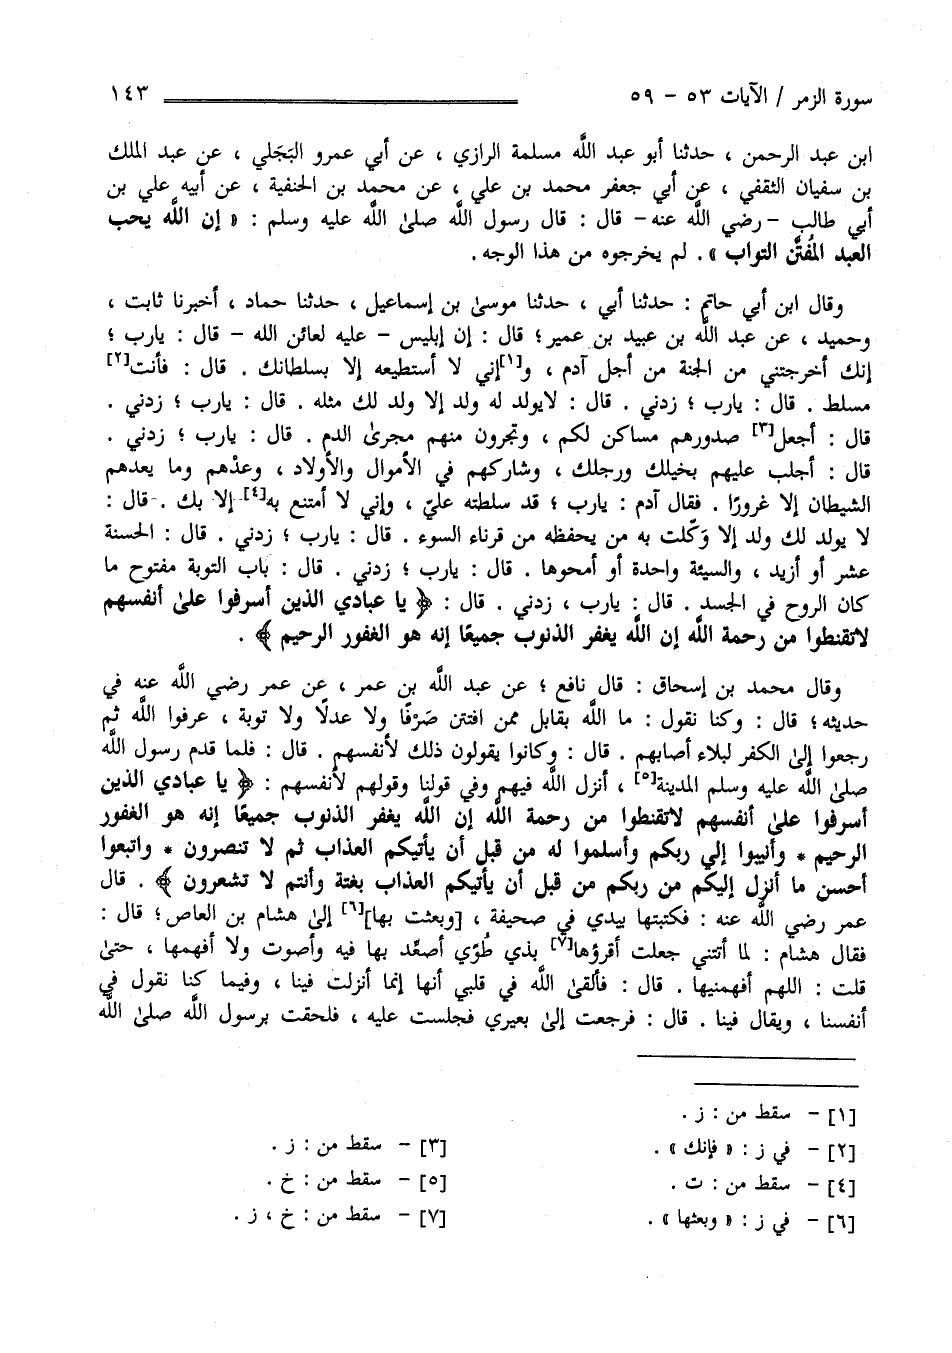 سورة الزمر / الآيات ٥٣ - ٥٩ ١٤٣
ابن عبد الرحمن ، حدثنا أبو عبد اللَّه مسلمة الرازي ، عن أبي عمرو البَجَلي ، عن عبد الملك
بن سفيان الثقفي ، عن أبي جعفر محمد بن علي ، عن محمد بن الحنفية ، عن أبيه علي بن
أبي طالب - رضي اللَّه عنه- قال : قال رسول اللَّه صلىٰ اللَّه عليه وسلم : « إن اللَّه يحب
العبد المُفتَّن التواب » . لم يخرجوه من هذا الوجه .
وقال ابن أبي حاتم : حدثنا أبي ، حدثنا موسىٰ بن إسماعيل ، حدثنا حماد ، أخبرنا ثابت ،
وحميد ، عن عبد اللَّه بن عبيد بن عمير؛ قال : إن إبليس - عليه لعائن الله - قال : يارب ؛
إنك أخرجتني من الجنة من أجل آدم ، و[١]إني لا أستطيعه إلا بسلطانك . قال : فأنت[٢]
مسلط . قال : يارب ؛ زدني . قال : لايولد له ولد إلا ولد لك مثله . قال : يارب ؛ زدني .
قال : أجعل[٣] صدورهم مساكن لكم ، وتجرون منهم مجرىٰ الدم . قال : يارب ؛ زدني .
قال : أجلب عليهم بخيلك ورجلك ، وشاركهم في الأموال والأولاد ، وعدْهم وما يعدهم
الشيطان إلا غرورًا . فقال آدم : يارب ؛ قد سلطته عليّ ، وإني لا أمتنع به[٤] إلا بك . قال :
لا يولد لك ولد إلا وَكّلت به من يحفظه من قرناء السوء . قال : يارب ؛ زدني . قال : الحسنة
عشر أو أزيد ، والسيئة واحدة أو أمحوها . قال : يارب ؛ زدني . قال : باب التوبة مفتوح ما
كان الروح في الجسد . قال : يارب ، زدني . قال : ﴿ يا عبادي الذين أسرفوا علىٰ أنفسهم
لاتقنطوا من رحمة اللَّه إن اللَّه يغفر الذنوب جميعًا إنه هو الغفور الرحيم ﴾ .
وقال محمد بن إسحاق : قال نافع ؛ عن عبد اللَّه بن عمر ، عن عمر رضي اللَّه عنه في
حديثه؛ قال : وكنا نقول : ما اللَّه بقابل ممن افتتن صَرْفًا ولا عدلًا ولا توبة ، عرفوا اللَّه ثم
رجعوا إلىٰ الكفر لبلاء أصابهم . قال : وكانوا يقولون ذلك لأنفسهم . قال : فلما قدم رسول اللَّه
صلىٰ اللَّه عليه وسلم المدينة[٥] ، أنزل اللَّه فيهم وفي قولنا وقولهم لأنفسهم : ﴿ يا عبادي الذين
أسرفوا علىٰ أنفسهم لاتقنطوا من رحمة اللَّه إن اللَّه يغفر الذنوب جميعًا إنه هو الغفور
الرحيم * وأنيبوا إلي ربكم وأسلموا له من قبل أن يأتيكم العذاب ثم لا تنصرون * واتبعوا
أحسن ما أنزل إليكم من ربكم من قبل أن يأتيكم العذاب بغتة وأنتم لا تشعرون ﴾ . قال
عمر رضي اللَّه عنه : فكتبتها بيدي في صحيفة ، [وبعثت بها][٦] إلىٰ هشام بن العاص؛ قال :
فقال هشام : لما أتتني جعلت أقرؤها[٧] بذي طُوًي أصعِّد بها فيه وأصوت ولا أفهمها ، حتىٰ
قلت : اللهم أفهمنيها . قال : فألقىٰ اللَّه في قلبي أنها إنما أنزلت فينا ، وفيما كنا نقول في
أنفسنا ، ويقال فينا . قال : فرجعت إلىٰ بعيري فجلست عليه ، فلحقت برسول اللَّه صلىٰ اللَّه
[١] - سقط من : ز .
[٢] - في ز : « فإنك » . [٣] - سقط من : ز .
[٤] - سقط من : ت . [٥] - سقط من : خ .
[٦] - في ز : « وبعثها » . [٧] - سقط من : خ ، ز .